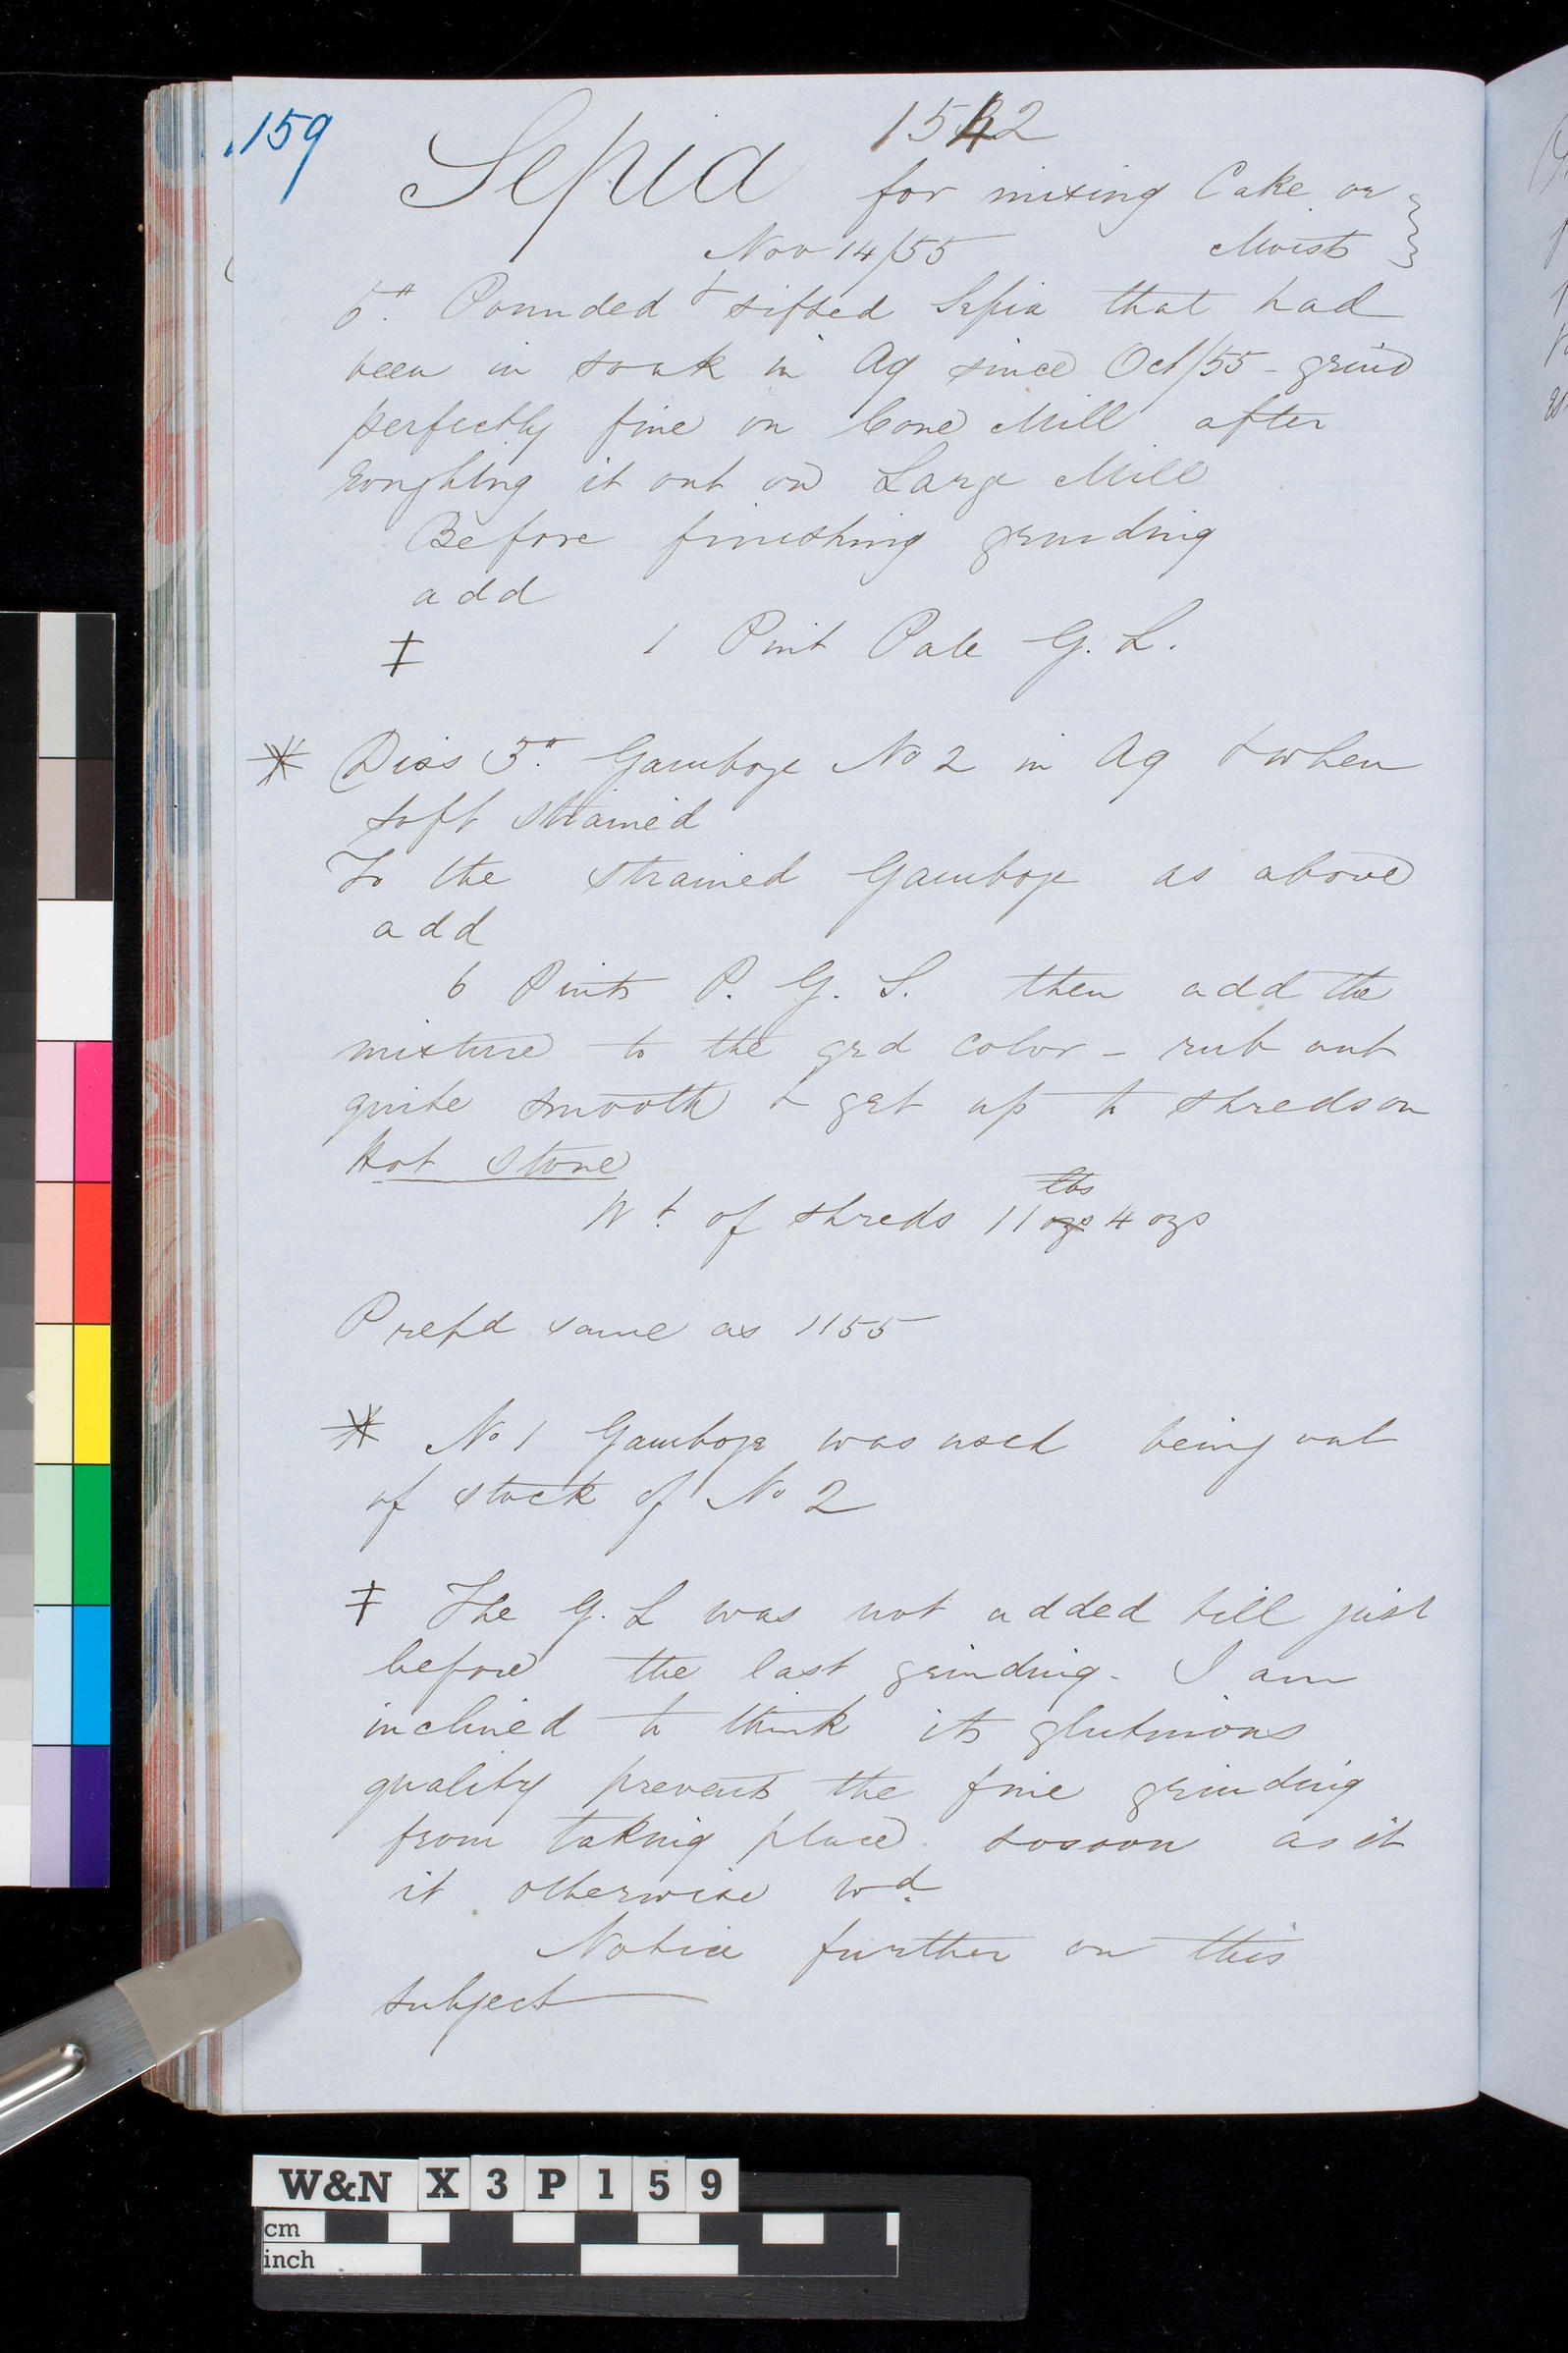 159
1542
Sepia for mixing Cake or
Nov 14/55 Moist
5" Pounded & sifted Sepia that had
been in soak in Aq since Oct/55 - grind
perfectly fine on Cone Mill after
roughing it out on Large Mill
Before finishing grinding
add
‡ 1 Pint Pale G. L.
* Diss 3" Gamboge No 2 in Aq & when
soft strained
To the strained Gamboge as above
add
6 Pints P. G. S. then add the
mixture to the grd color - rub out
quite smooth & get up to shreds on
Hot Stone
lbs
Wt of shreds 11 ozs 4 ozs
Prepd same as 1155
* No 1 Gamboge was used being out
of stock of No 2
‡ The G. L was not added till just
before the last grinding. I am
inclined to think its glutinous
quality prevents the fine grinding
from taking place so soon as it
it otherwise wd.
Notice further on this
subject
W&N X 3 P 1 5 9
cm
inch